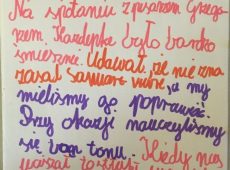 Na spotaniu z pisarzem Grzego
rzem Kasdepke było bardzo
śmieszne. Udawał, że nie zna
zasad a my
mieliśmy go poprawiać.
Przy okazji nauczyliśmy
się bon tonu. Kiedy nas